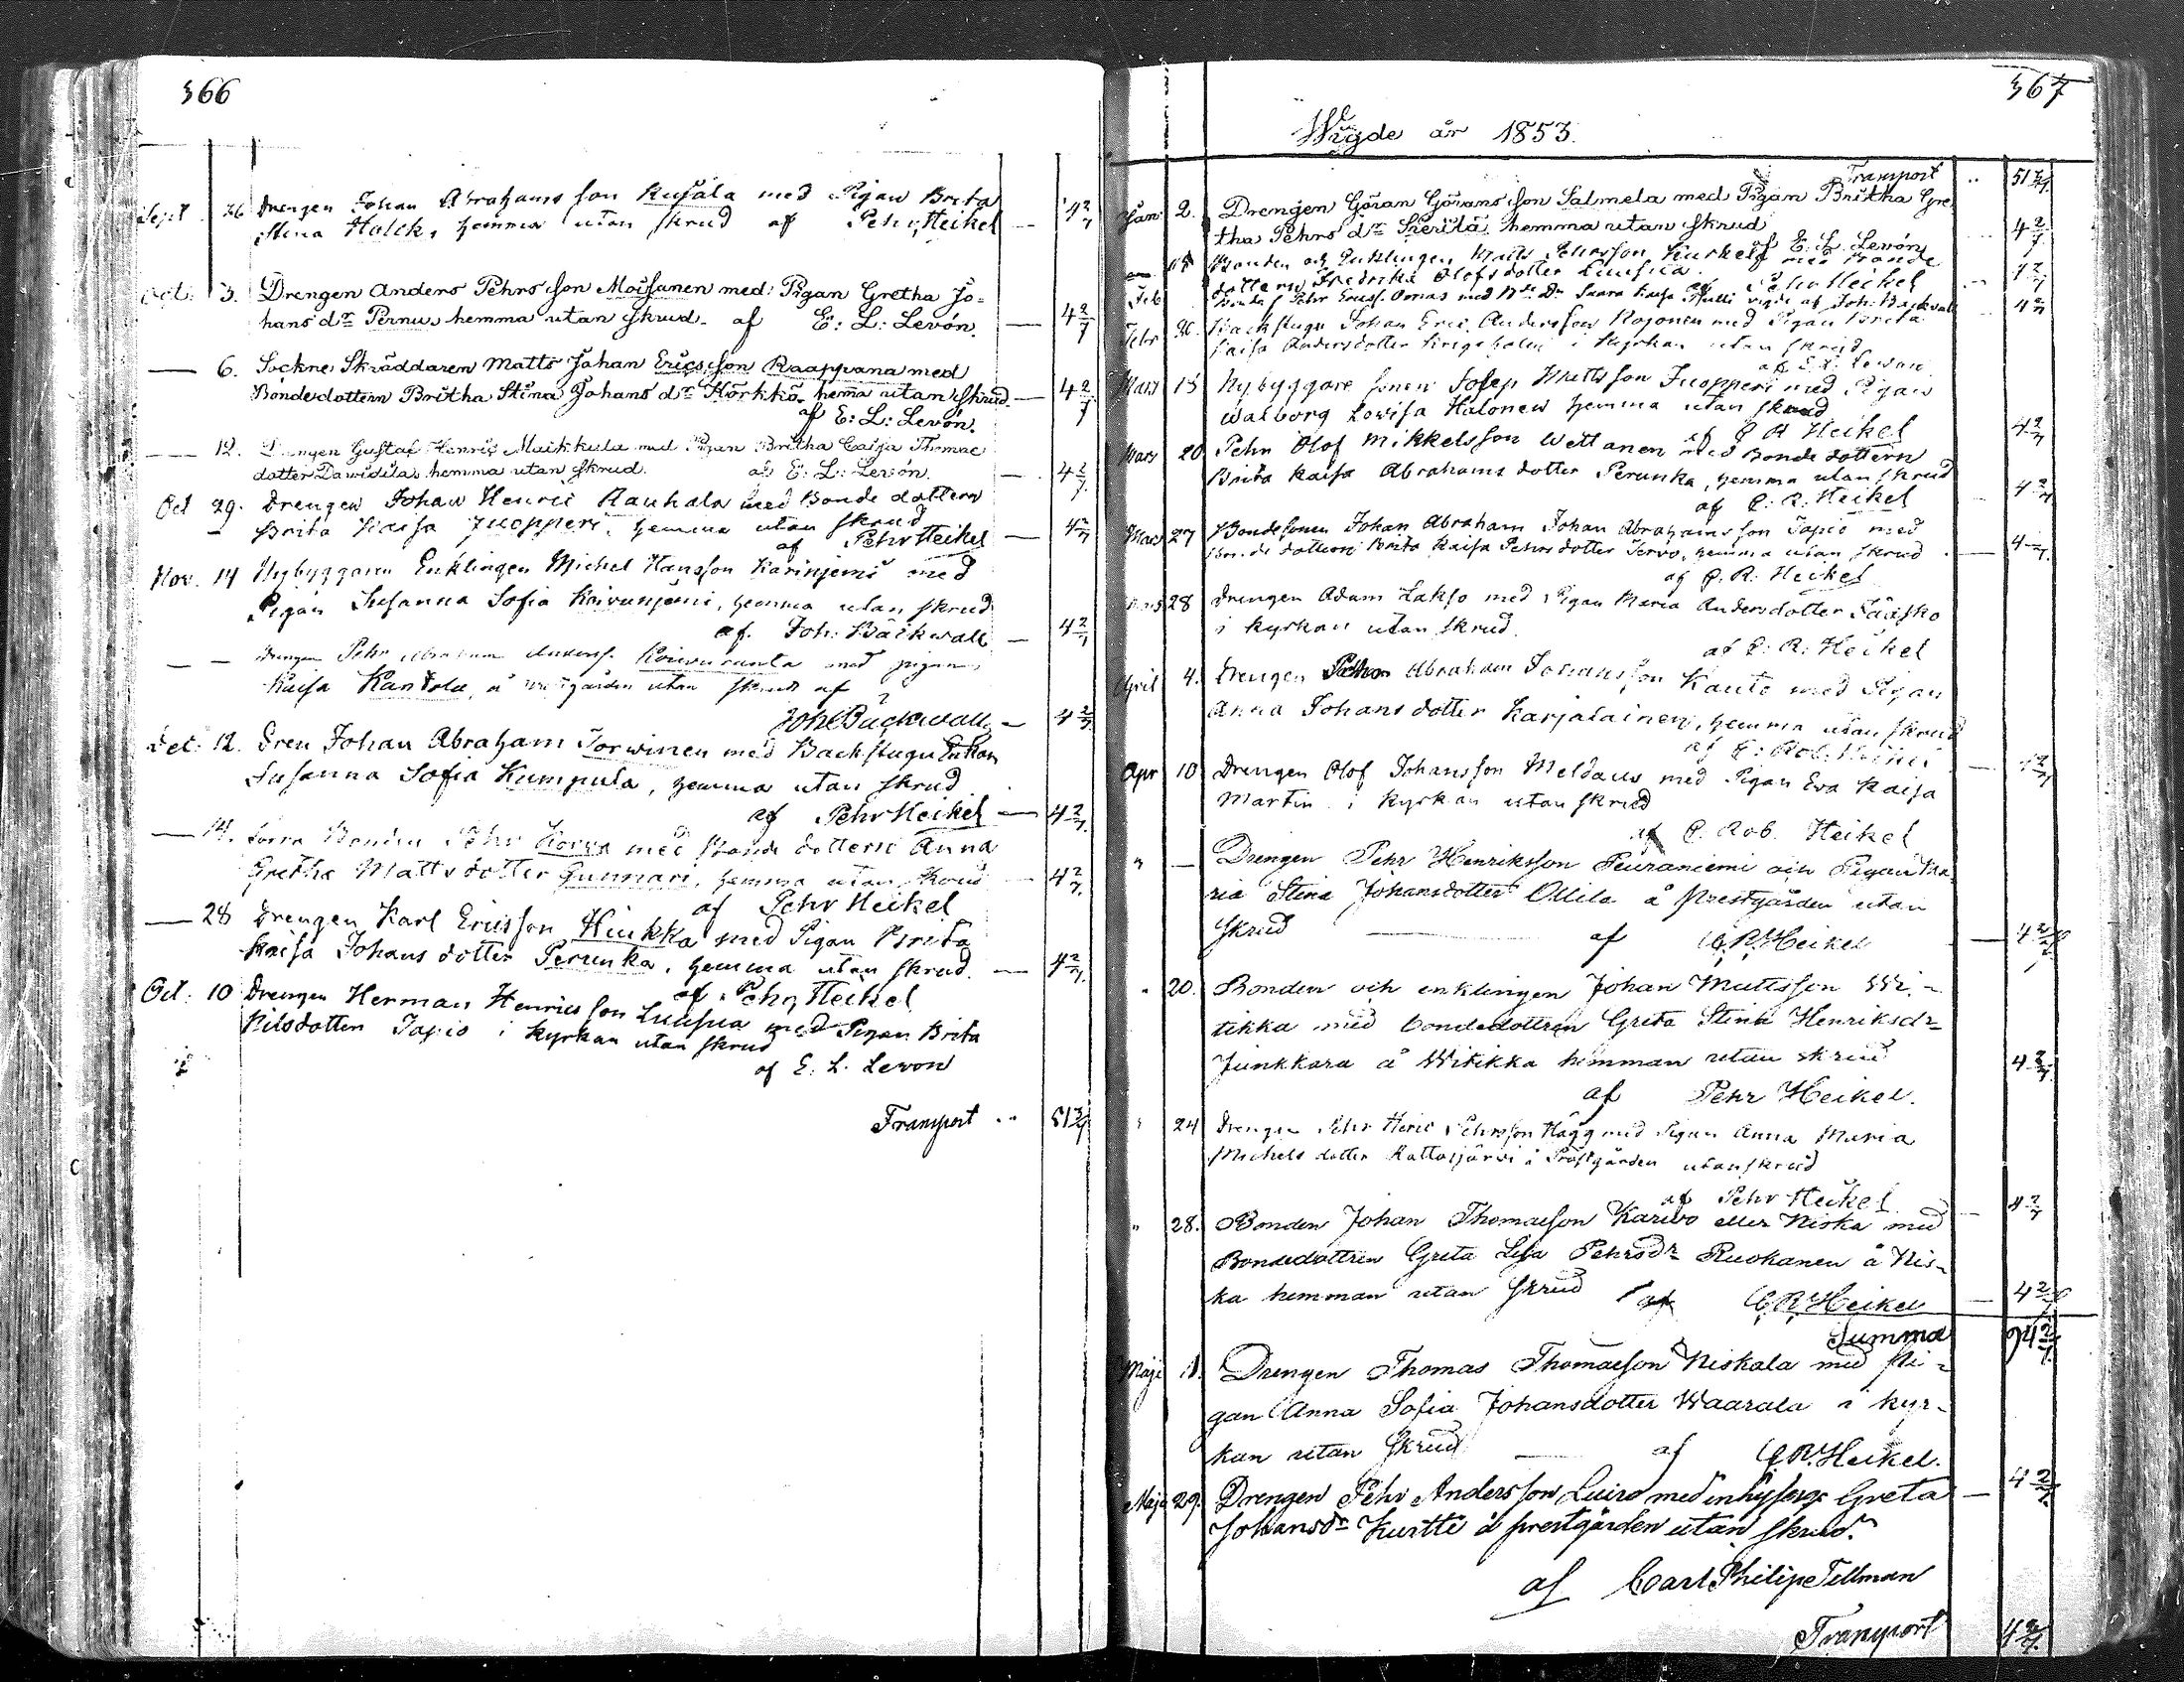 366
Sept. 26 Drengen Johan Abrahamsson Kusåla med Pigan Brita
Stina Holck, hemma utan skrud af Pehr Heikel — 4 2/7
Oct: 3. Drengen Anders Pehrsson Moisanen med Pigan Gretha Jo-
hansdr Pernu, hemma utan skrud. af E: L: Levón. — 4 2/7
— 6. Sockne Skräddaren Matts Johan Ericsson Raappana med
Bondedottern Britha Stina Johansdr Hörkkö hema utan skrud. — 4 2/7
af E: L: Levón.
— 12. Drengen Gustaf Henric Muikkula med Pigan Britha Caisa Thomae
dotter Dawidilas hemma utan skrud. af E: L: Levón. — 4 2/7
Oct 29. Drengen Johan Henric Rauhala med Bondedottern
Brita Kaisa Juopperi, hemma utan skrud — 4 2/7
af Pehr Heikel
Nov. 14 Nybyggaren Enklingen Michel Hansson Karinjemi med
Pigan Susanna Sofia Koivunjemi, hemma utan skrud
af. Joh: Bäckwall — 4 2/7
— — Drengen Pehr Abraham Anderss. Koivuranta med pigan
Kaisa Kantola, å prestgården utan skrud af
Joh: Bäckwall — 4 2/7
Det: 12. Dren Johan Abraham Torwinen med Backstugu Enkan
Susanna Sofia Kumpula, hemma utan skrud
af Pehr Heikel — 4 2/7
— 14. Bonden Pehr Korva med Bonde dottern Anna
Gretha Mattsdotter Gunnari, hemma utan skrud — 4 2/7
af Pehr Heikel
— 28 Drengen Karl Ericsson Hiukka med Pigan Brita
Kaisa Johansdotter Perunka, hemma utan skrud. — 4 2/7
af Pehr Heikel
Oct: 10 Drengen Herman Henricsson Luusua med Pigan Brita
Nilsdotter Tapio i kyrkan utan skrud
af E. L. Levon
Transport .. 51 3/7
367
Wigde år 1853.
Transport .. 51 3/7
Jan. 2. Drengen Göran Göransson Salmela med Pigan Britha Gre-
tha Pehrsdr Sieritä hemma utan skrud — 4 2/7
af E. L. Levón
— Bonden och Enklingen Matts Pehrsson Kurkela med Bonde
dottern Fredrika Olofsdotter Luusua. af Pehr Heikel — 4 2/7
Feb Bonde s Pehr Ericss. Ornas med Bde Dr Saara Kaisa Pulli vigde af Joh. Bäckwall 4 2/7
Febr 20. Backstugu Johan Eric Andersson Rojonen med Pigan Brita
Kaisa Andersdotter i kyrkan utan skrud
af E. L. Levon
Mars 15 Nybyggare sonen Josep Mattsson Juopperi med Pigan
Walborg Lowisa Halonen hemma utan skrud
af P. R Heikel 4 2/7
Mars 20 Pehr Olof Mikkelsson Wettanen med Bonde dottern
Brita Kaisa Abrahamsdotter Perunka, hemma utan skrud
af P. R. Heikel — 4 2/7
Mars 27 Bondesonen Johan Abraham Johan Abrahamsson Tapio med
Bonde dottern Brita Kaisa Pehrsdotter Tervo, hemma utan skrud — 4 2/7
af P. R. Heikel
Mars 28 Drengen Adam Lakso med Pigan Maria Andersdotter Sääsko
i kyrkan utan skrud.
af P. R. Heikel
April 4. Drengen Abraham Johansson Kauto med Pigan
Anna Johansdotter Karjalainen, hemma utan skrud
af P. Rob. Heikel — 4 2/7
Apr 10 Drengen Olof Johansson Meldaus med Pigan Eva Kaisa
Martin i kyrkan utan skrud
af P. Rob. Heikel
" — Drengen Pehr Henriksson Peuraniemi och Pigan Ma-
ria Stina Johansdotter Ollila å Prestgården utan
skrud — af P. R. Heikel — 4 2/7
" 20. Bonden och enklingen Johan Mattsson Wi-
tikka med bondedottren Greta Stina Henriksdr
Junkkara å Witikka hemman utan skrud 4 2/7
af Pehr Heikel.
" 24 Drengen Pehr Heric Pehrsson Hägg med Pigan Anna Maria
Michelsdotter Kattosjärvi å Prästgården utan skrud
af Pehr Heikel — 4 2/7
" 28. Bonden Johan Thomaeson Karvo eller Niska med
Bondedottren Greta Lisa Pehrsdr Ruokanen å Nis-
ka hemman utan skrud af P. R. Heikel — 4 2/7
Summa 94 2/7
Maji 1. Drengen Thomas Thomaeson Niskala med Pi-
gan Anna Sofia Johansdotter Waarala i kyr-
kan utan skrud — af P. R. Heikel.
Maji 29. Drengen Pehr Andersson Luiro med inhyses Greta — 4 2/7
Johansdr Kurtti å prestgården utan skrud.
af Carl Philip Tellman
Transport 4 2/7